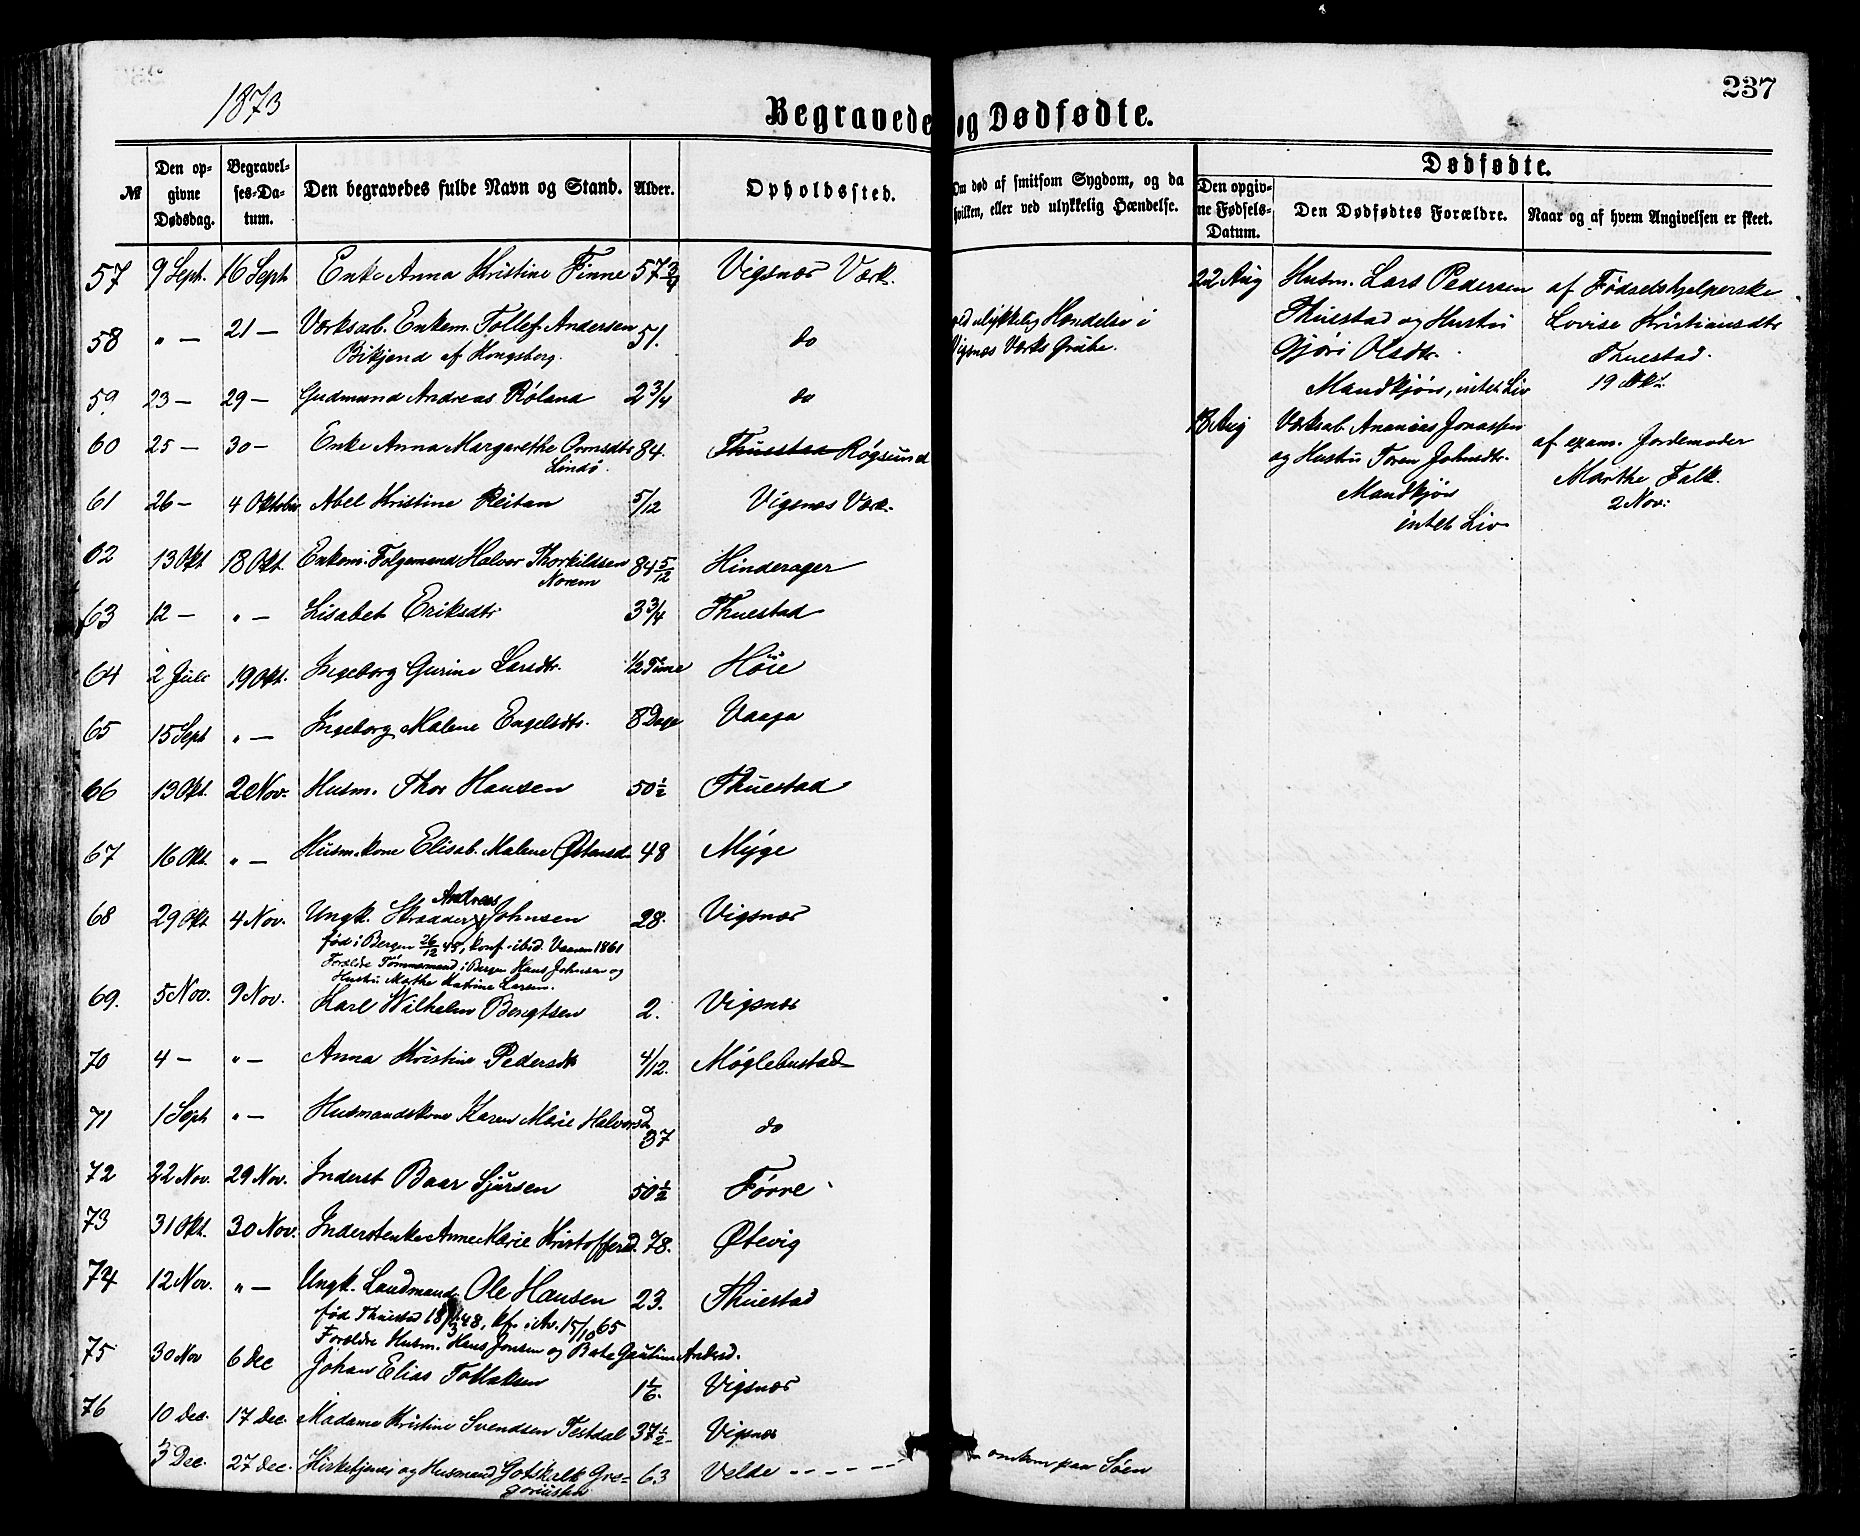 1873
237
Begravede og Dødfødte.
№ | Den opgivne Dødsdag. | Begravelses-Datum. | Den begravedes fulde Navn og Stand. | Alder. | Opholdssted. | Om død af smitsom Sygdom, og da hvilken, eller ved ulykkelig Hændelse. | Dødfødte. | Den opgivne Fødsels-Datum. | Den Dødfødtes Forældre. | Naar og af hvem Angivelsen er skeet.
57 9 Sept. 16 Sept Enke Anna Kristine Finne 57 3/4 Vigsnæs Værk.
58 " — 21 — Værksarb. Enkem. Tollef Andersen
Bikjend af Kongsberg. 51. do ved ulykkelig Hændelse i
Vigsnæs Værks Grube.
59. 23 — 29 — Gudmund Andreas Røland 2 3/4 do
60 25 — 30 — Enke Anna Margarethe Ormsdtr 84. Thuestad Røgsund
Lindø.
61 26 — 4 Oktober Abel Kristine Reitan 5/12 Vigsnæs Værk.
62 13 Okt 18 Okt. Enkem. Folgemand Halvor Thorkildsen 84 5/12 Hinderager
Norem
63 12 — " — Lisabet Eriksdtr 3 3/4 Thuestad
64 2 Juli 19 Okt. Ingeborg Gurine Larsdtr. 1/2 Time Høie
65 15 Sept " — Ingeborg Malene Engelsdtr. 8 Dage Vaaga
66 13 Okt. 2 Nov. Husm. Thor Hansen 50 1/2 Thuestad
67 16 Okt. " — Husm.kone Elisab. Malene Østensd. 48 Myge
Andreas
68 29 Okt 4 Nov. Ungk. Skrædder Johnsen 28. Vigsnæs
fød i Bergen 26/12 45, konf. ibid. Vaaren 1861
Forældre Tømmermand i Bergen Hans Johnsen og
Hustru Marthe Katrine Larsen.
69. 5 Nov. 9 Nov. Karl Wilhelm Bengtsen 2. Vigsnæs
70 4 — " — Anna Kristine Pedersdtr 4/12. Møglebustad
71 1 Sept " — Husmandskone Karen Marie Halvorsd 37 do
72 22 Nov. 29 Nov. Inderst Baar Sjursen 50 1/2 Førre
73 31 Okt. 30 Nov. Inderstenke Anne Marie Kristoffersd. 78. Øtevig
74 12 Nov. " — Ungk. Landmand Ole Hansen 23. Thuestad
Forældre Husm. Hans Jonsen og Gautine Andersd.
75 30 Nov 6 Dec Johan Elias Tollaksen 1 1/6. Vigsnæs
76 10 Dec. 17 Dec. Madame Kristine Svendsen Testdal 37 1/2 Vigsnæs
3 Dec. 27 Dec. Kirketjener og Husmand Gotskalk Gregoriussen 63 Velde - - - - - omkom paa Søen
22 Aug Husm. Lars Pedersen
Thuestad og Hustru
Gjøri Olsdtr.
Mandkjøn, intet Liv
af Fødselshjelperske
Lovise Kristiansdtr
Thuestad.
19 Okt.
13 Aug Værksab. Ananias Jonassen
og Hustru Toren Johnsdtr.
Mandkjøn
intet Liv
af exam. Jordemoder
Marthe Falk.
2 Nov.